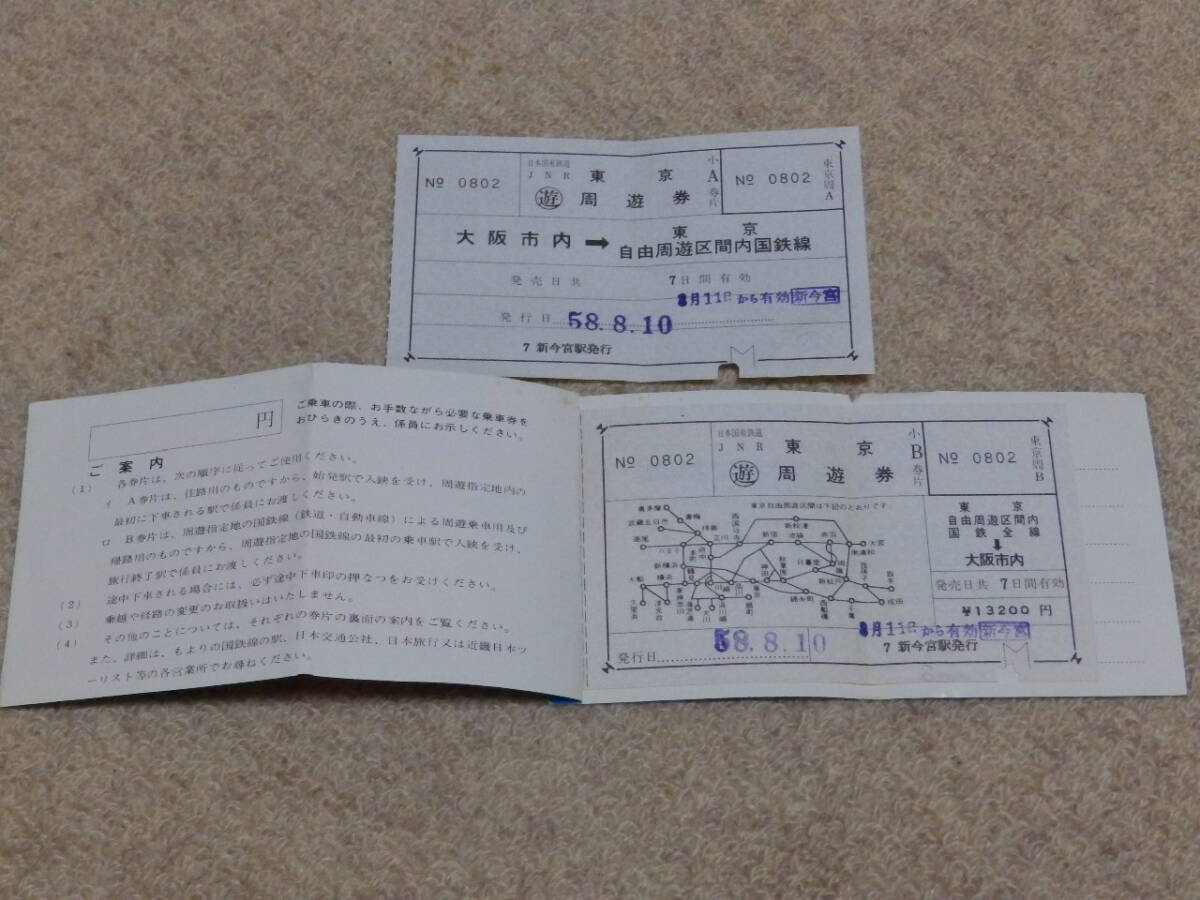 日本国有鉄道
JNR
東京
小A券片
No 0802
遊 周遊券
No 0802
東京周A
大阪市内 ➡ 東京
自由周遊区間内国鉄線
発売日共 7日間有効
8月11日から有効 新今宮
発行日 58.8.10
7 新今宮駅発行
円
ご乗車の際、お手数ながら必要な乗車券を
おひらきのうえ、係員にお示しください。
ご案内
(1) 各券片は、次の順序に従ってご使用ください。
イ A券片は、往路用のものですから、始発駅で入鋏を受け、周遊指定地内の
最初に下車される駅で係員にお渡しください。
ロ B券片は、周遊指定地の国鉄線(鉄道・自動車線)による周遊乗車用及び
帰路用のものですから、周遊指定地の国鉄線の最初の乗車駅で入鋏を受け、
旅行終了駅で係員にお渡しください。
(2) 途中下車される場合には、必ず途中下車印の押なつをお受けください。
(3) 乗越や経路の変更のお取扱いはいたしません。
(4) その他のことについては、それぞれの券片の裏面の案内をご覧ください。
また、詳細は、もよりの国鉄線の駅、日本交通公社、日本旅行又は近畿日本ツ
ーリスト等の各営業所でお尋ねください。
日本国有鉄道
JNR
東京
小B券片
No 0802
遊 周遊券
No 0802
東京周B
東京自由周遊区間は下記のとおりです。
奥多摩
青梅
武蔵五日市
拝島
高尾
八王子
立川
西国分寺
府中本町
新横浜
横浜
鶴見
大船
川崎
品川
東京
新宿
池袋
赤羽
新秋津
大宮
南浦和
日暮里
秋葉原
神田
錦糸町
新松戸
西船橋
千葉
我孫子
取手
成田
東京
自由周遊区間内
国鉄全線
⬇
大阪市内
発売日共 7日間有効
¥13200 円
8月11日から有効 新今宮
発行日 58.8.10
7 新今宮駅発行